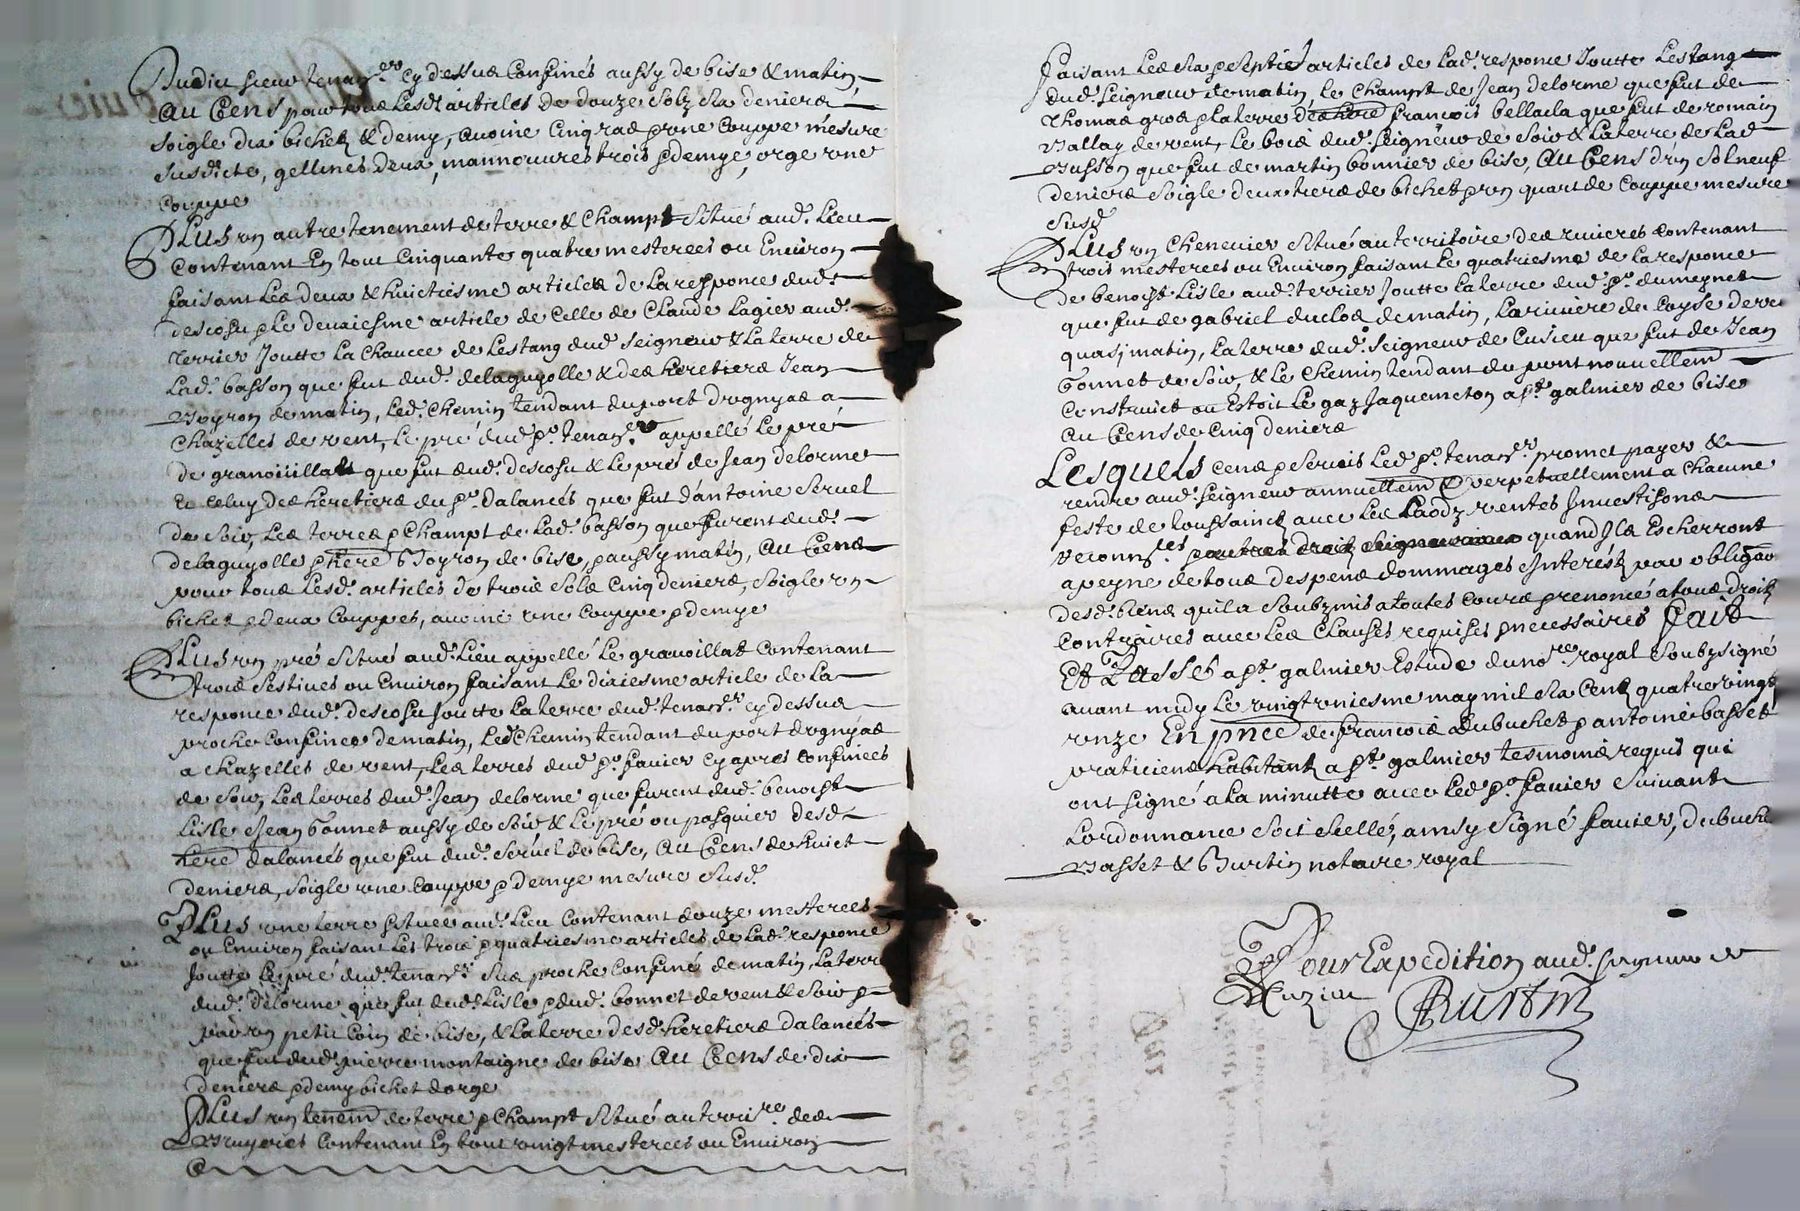 Dudict sieur tenan.er cy dessus Confinés aussy de bise & matin,
Au Cens pour tous lesd. articles de douze solz six deniers
soigle dix bichetz & demy, avoine Cinq ras & une Couppe mésure
susdicte, gellines deux, mannœuvres trois & demye, orge une
Couppe
PLUS un autre tenement de terre & Champt Situé aud. Lieu
Contenant En tout Cinquante quatre mesterees ou Environ
faisant Les deux & huictiesme articles de La responce dud.
descosu & Le deuxiesme article de Celle de Claude Lagier aud.
terrier Joutte La Chaucee de Lestang dud. seigneur & La terre de
Lad. basson que fut dud. delaguyolle & des heretiers Jean
Voyron de matin, Led. Chemin tendant du port dognyas a
Chazelles de vent, Le pré dud. sr. tenan.er appellé Le pré
de granoüillat que fut dud. descosu & Le pré de Jean delorme
Et Celuy des heretiers du sr. dalancés que fut dantoine Seruel
de soir, Les terres & Champt de Lad. basson que furent dud.
delaguyolle & here Voyron de bise, & aussy matin, Au Cens
pour tous Lesd. articles de trois sols Cinq deniers, Soigle un
bichet & deux Couppes, avoine une Couppe & demye
PLUS un pré Situé aud. Lieu appellé Le granoillat Contenant
trois Sestives ou Environ faisant Le dixiesme article de La
responce dud. descosu Joutte La terre dud. tenan.er cy dessus
proche Confinee de matin, Led. Chemin tendant du port dognyas
a Chazelles de vent, Les terres dud. sr. favier Cy apres Confinees
de soir, Les terres dud. Jean delorme que furent dud. benoist
Lisle & Jean Bonnet aussy de soir & Le pré ou pasquier desd.
here dalancés que fut dud. Seruel de bise, Au Cens de huict
deniers, Soigle une Couppe & demye mesure Susd.
PLUS une terre Situee aud. Lieu Contenant douze mesterees
ou Environ faisant Les trois & quatriesme articles de Lad. responce
Joutte Le pré dud. tenan.er Sus proche Confiné de matin, La terre
dud. delorme que fut dud. Lisle & dud. bonnet de vent & Soir &
par un petit Coin de bise, & La terre desd. heretiers dalancés
que fut dud. pierre montaigne de bise Au Cens de dix
deniers & demy bichet dorge
PLUS un tenem de terre & Champt Situé au terri.re des
Bruyeres Contenant En tout vingt mesterees ou Environ
faisant Les six & Septies articles de Lad. responce Joutte Lestang
dud. Seigneur de matin, Le Champt de Jean delorme que fut de
thomas gros & La terre des here françois bellacla que fut de romain
Vallay de vent, Le bois dud. Seigneur de Soir & La terre de Lad.
Basson que fut de martin bonnier de bise, Au Cens dun Sol neuf
deniers Soigle deux tiers de bichet & un quart de Couppe mesure
susd.
PLUS un Chenevier situé au territoire des rivieres Contenant
trois mesterees ou Environ faisant Le quatriesme de La responce
de benoist Lisle aud. terrier Joutte La terre dud. sr. dumeynet
que fut de gabriel duclos de matin, La riviere de Coyse de vent
quasj matin, La terre dud. Seigneur de Cusieu que fut de Jean
Bonnet de Soir, & Le Chemin tendant du pont nouuellem
Construict ou Estoit Le gaz Jaquemeton a st. galmier de bise
Au Cens de Cinq deniers
Lesquels cens & Servis Led. sr. tenan.er promet payer &
rendre aud. Seigneur annuellem & perpetuellement a Chacune
feste de toussainctz avec Les Laodz ventes Jnvestisons
reconn.ces & autres droitz Seigneuriaux quand Jls Escherront
a peyne de tous despens dommages & Jnterestz par obliga.on
desd. biens quil a Soubzmis a toutes cours & renoncé a tous droitz
Contraires avec Les Clauses requises & necessaires Fait
Et Passé a st. galmier Estude du no.re royal Soubzsigné
avant midy Le vingt uniesme may mil six Centz quatre vingtz
unze En pnce de francois dubuchet & antoine basset
praticiens habitantz a st. galmier tesmoins requis qui
ont signé a La minutte avec Led. sr. favier Suivant
Lordonnance Soit scellé, ainsy signé favier, dubuchet
Basset & Burtin notaire royal
Pour Expedition aud. seigneur de
Cuzieu
Burtin